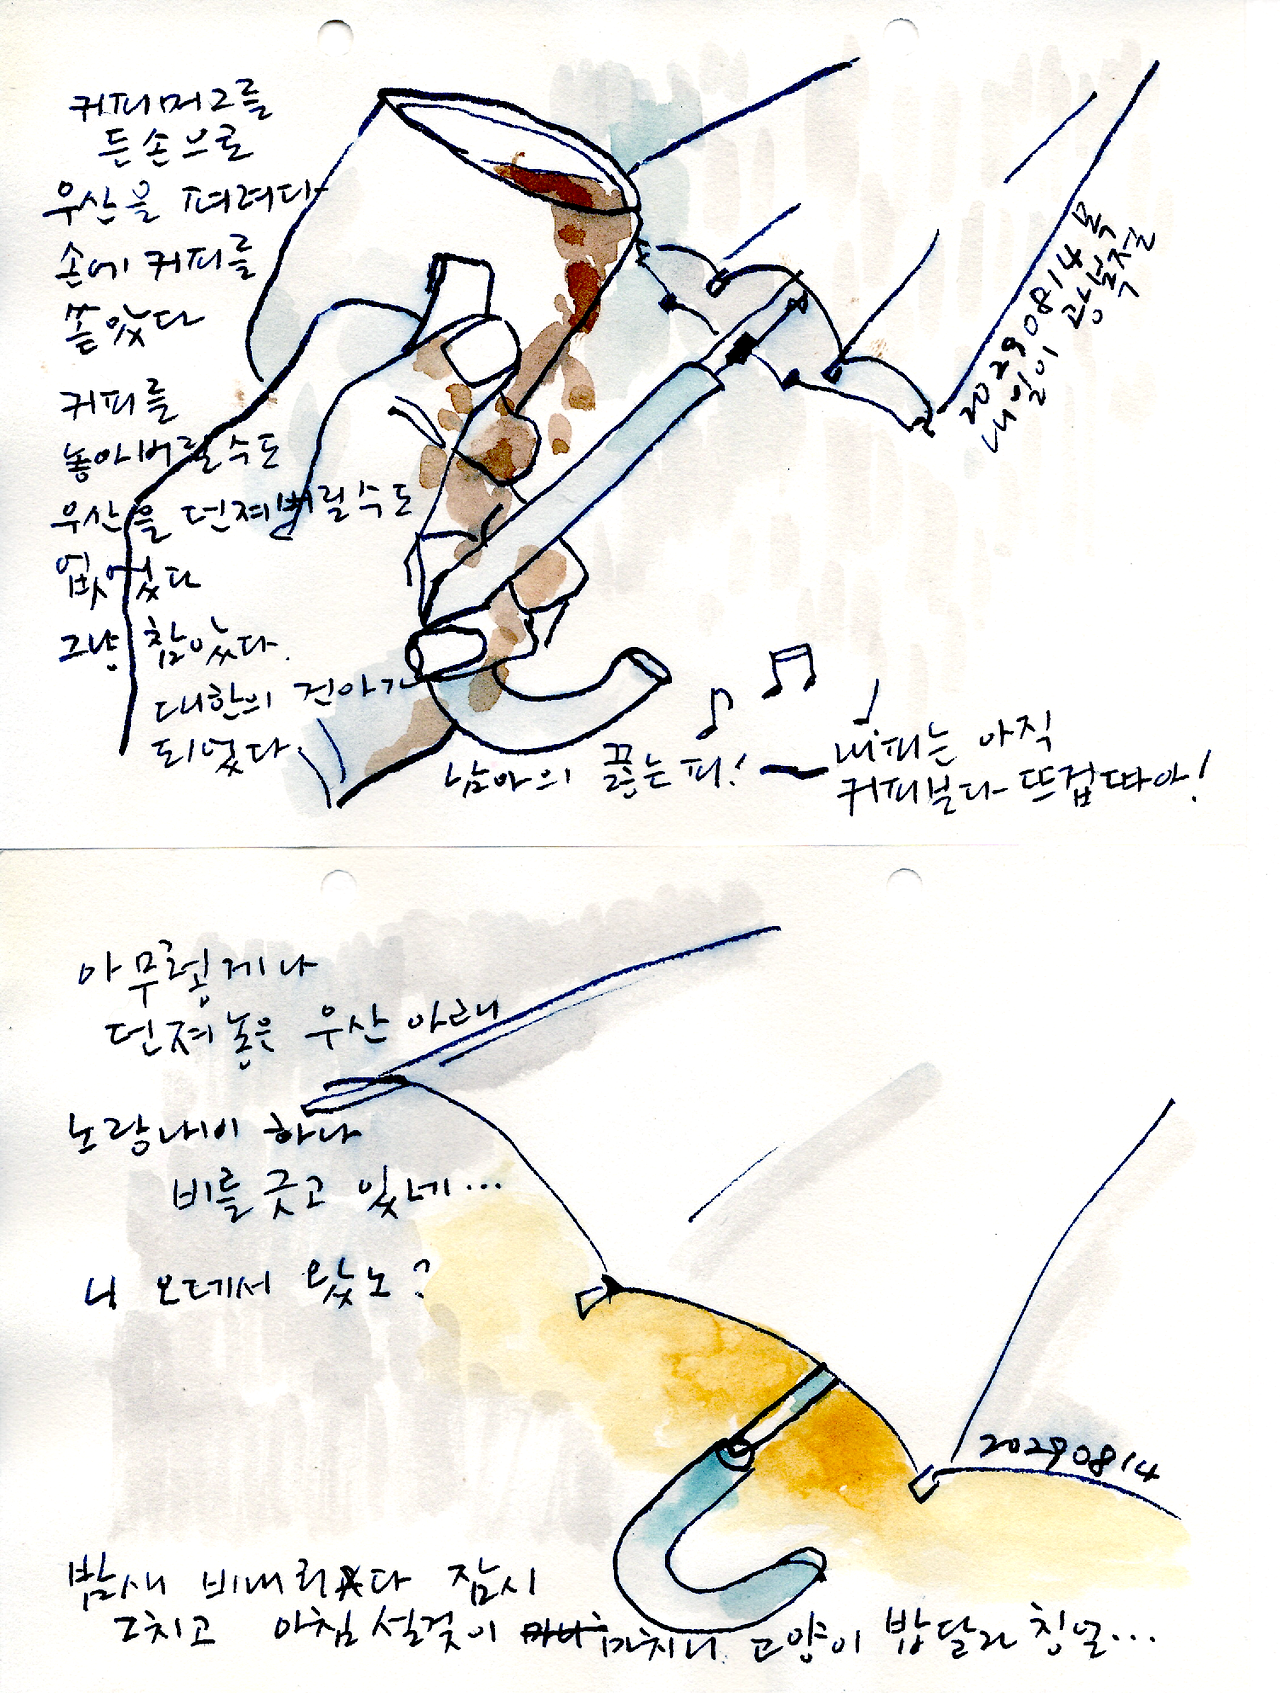 커피머그를
든손으로
우산을 펴려다
손에 커피를
쏟았다
커피를
놓아버릴수도
우산을 던져버릴수도
없었다
그냥 참았다.
대한의 건아가
되었다.
남아의 끓는피!
내피는 아직
커피보다 뜨겁따아!
20290814 목
내일이 광복절
아무렇게나
던져놓은 우산 아래
노랑나비 하나
비를 긋고 있네...
니 오데서 왔노?
20290814
밤새 비내리다 잠시
그치고 아침설겆이 마치니 고양이 밥달라 칭얼...